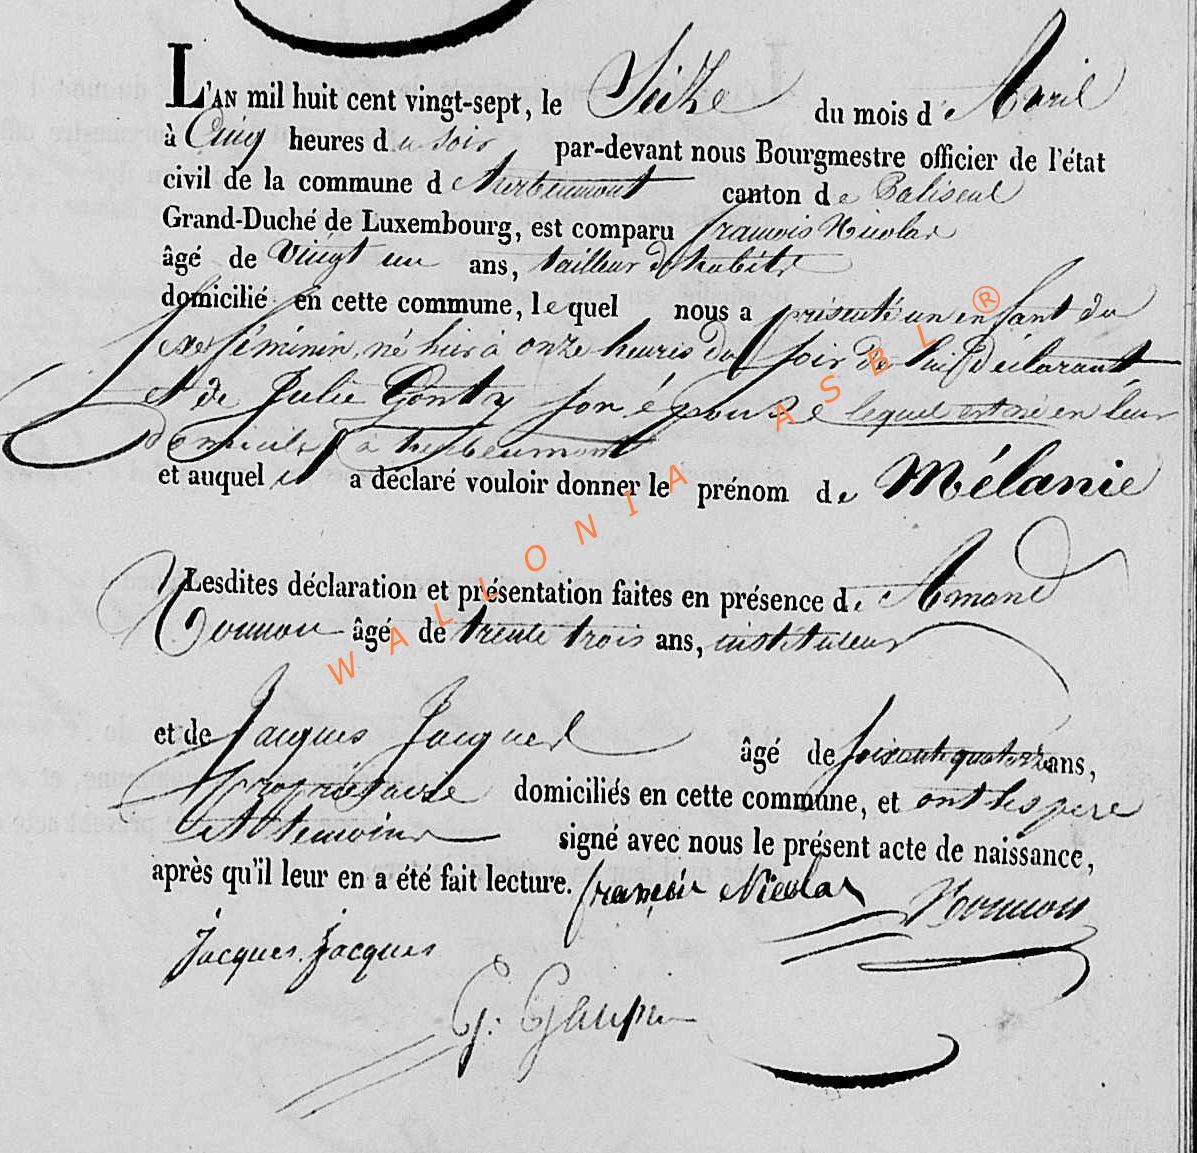 L'AN mil huit cent vingt-sept, le Seize du mois d'Avril
à Cinq heures du soir par-devant nous Bourgmestre officier de l'état
civil de la commune d'herbeumont canton de Paliseul
Grand-Duché de Luxembourg, est comparu françois Nicolas
âgé de Vingt un ans, tailleur d'habits
domicilié en cette commune, lequel nous a présenté un enfant du
sexe féminin, né hier à onze heures du Soir de lui Déclarant
et de Julie Gonty son épouse lequel est né en leur
Domicile à herbeumont
et auquel il a déclaré vouloir donner le prénom de Mélanie
Lesdites déclaration et présentation faites en présence de Amand
âgé de trente trois ans, instituteur
et de Jacques Jacques âgé de soixante quatorze ans,
propriétaire domiciliés en cette commune, et ont les pere
et temoins signé avec nous le présent acte de naissance,
après qu'il leur en a été fait lecture. françois Nicolas
Jacques Jacques
WALLONIA ASBL ®